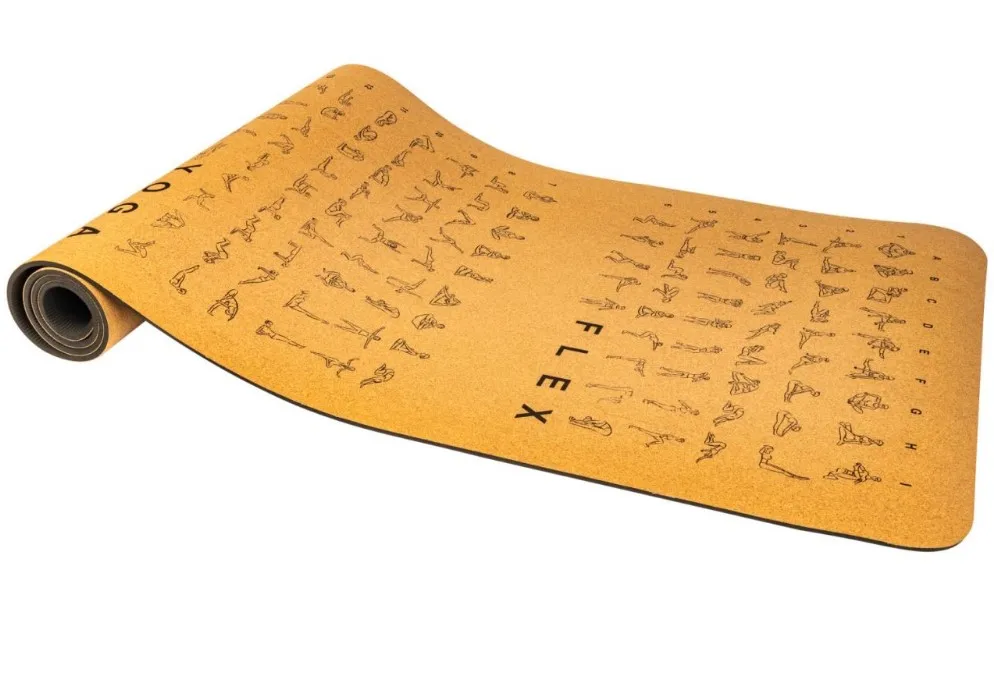 YOGA
FLEX
A B C D E F G H I